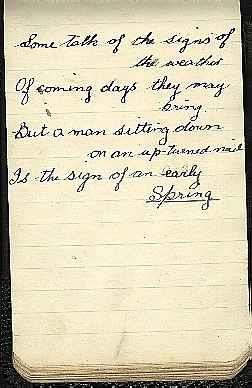 Some talk of the signs of
the weather
Of coming days they may
bring
But a man sitting down
on an up-turned nail
Is the sign of an early
Spring